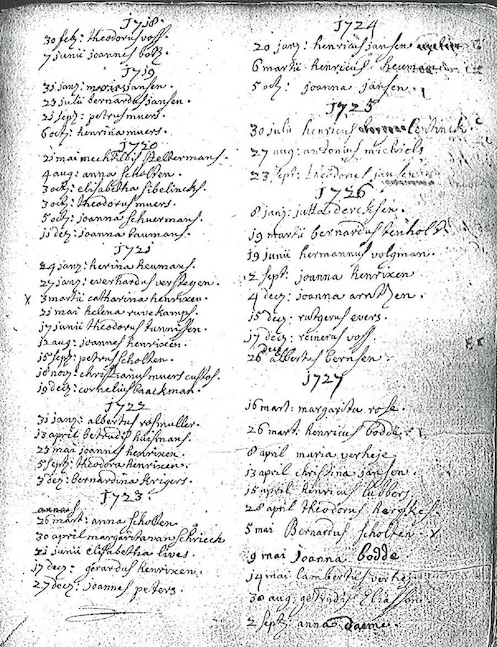 1718.
30 feb: theodorus voss.
7 junii joannes bolt.
1719
31 janz: maria jansen.
23 julii bernardus jansen.
21 sept: petrus muers.
6 octz: henrina muers.
1720
21 mai mechtildis stellermans.
4 aug: anna scholten.
3 octz: elisabetha sibelinck.
3 octz: theodorus muers
5 octz: joanna schuermans.
11 decz: joanna laumans.
1721
24 janz: herina heumans.
27 janz: everhardus verstegen.
x 3 martii catharina henrixen.
21 mai helena ruvekamps.
17 junii theodorus tunnissen
12 aug: joannes henrixen.
15 sept: petrus scholten.
18 novz: christianus muers custos.
19 decz: cornelius baackman.
1722
31 janz: albertus rosmuller.
13 april huismans.
23 mai joannes henrixen.
5 septz: theodora henrixen.
3 decz: Bernardina krigers.
1723.
26 mart: anna scholten
30 april margarita van schrieck
21 junii elisabetha lives.
17 decz: gerardus henrixen.
27 decz: joannes peters.
1724
20 janz: henricus jansen
6 martii henricus heuman
5 octz: joanna jansen.
1725
30 julii henricus
27 aug: antonius michiels
23 sept: theodorus jansen
1726
8 janz: jutta dercksen.
19 martii bernardus tenholt
19 junii hermannus volgman.
2 sept: joanna henrixen.
4 decz: joanna arntzen.
15 decz: rutgerus evers.
17 decz: reinerus voss
26 decz albertus bernsen.
1727
16 mart: margarita rose.
26 mart: henricus bodde.
8 april maria verheij
13 april christina jansen.
15 april henricus lubbers
28 april theodorus
5 mai Bernardus scholten.
9 mai joanna bodde
14 mai lambertus verheij
30 aug:
2 septz: anna daeme.